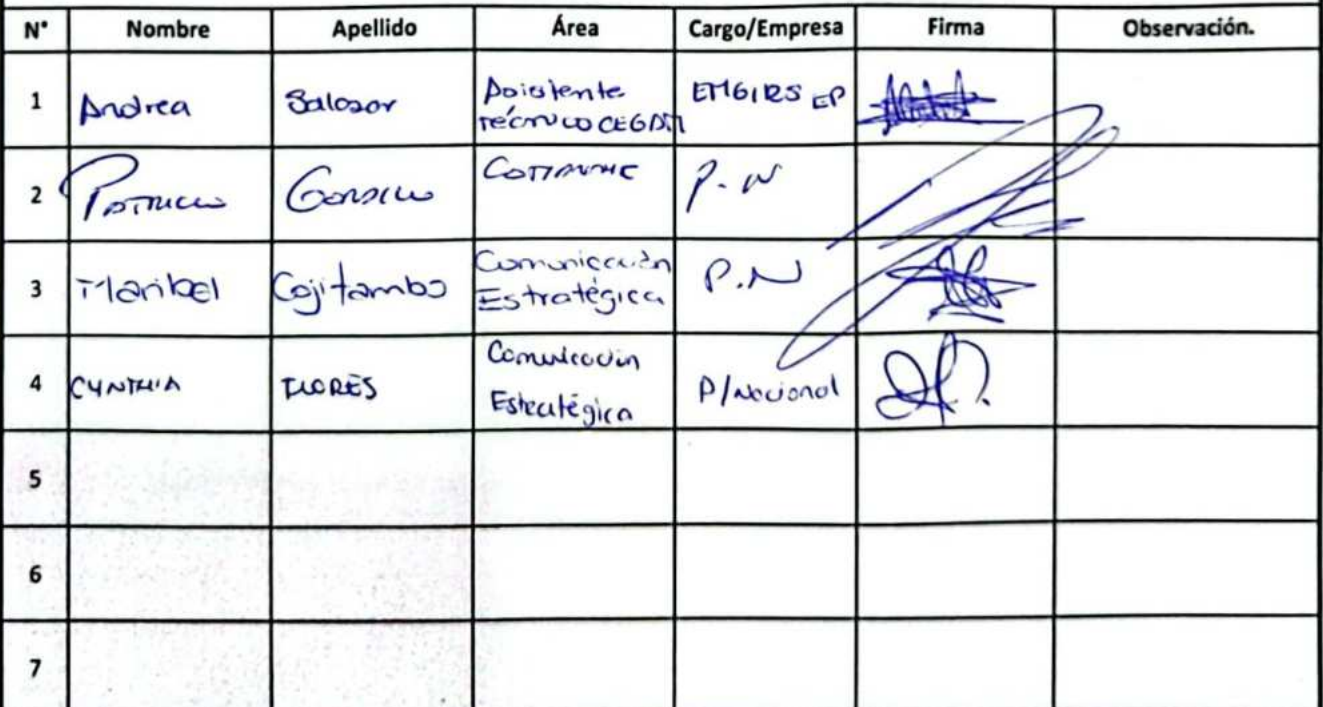 N° Nombre Apellido Área Cargo/Empresa Firma Observación.
1 Andrea Salazar Asistente técnico CEGDM EMGIRS EP
2 Patricio Gordillo P.N
3 Maribel Cojitambo Comunicación Estratégica P.N
4 CYNTHIA FLORES Comunicación Estratégica P/Nacional
5
6
7